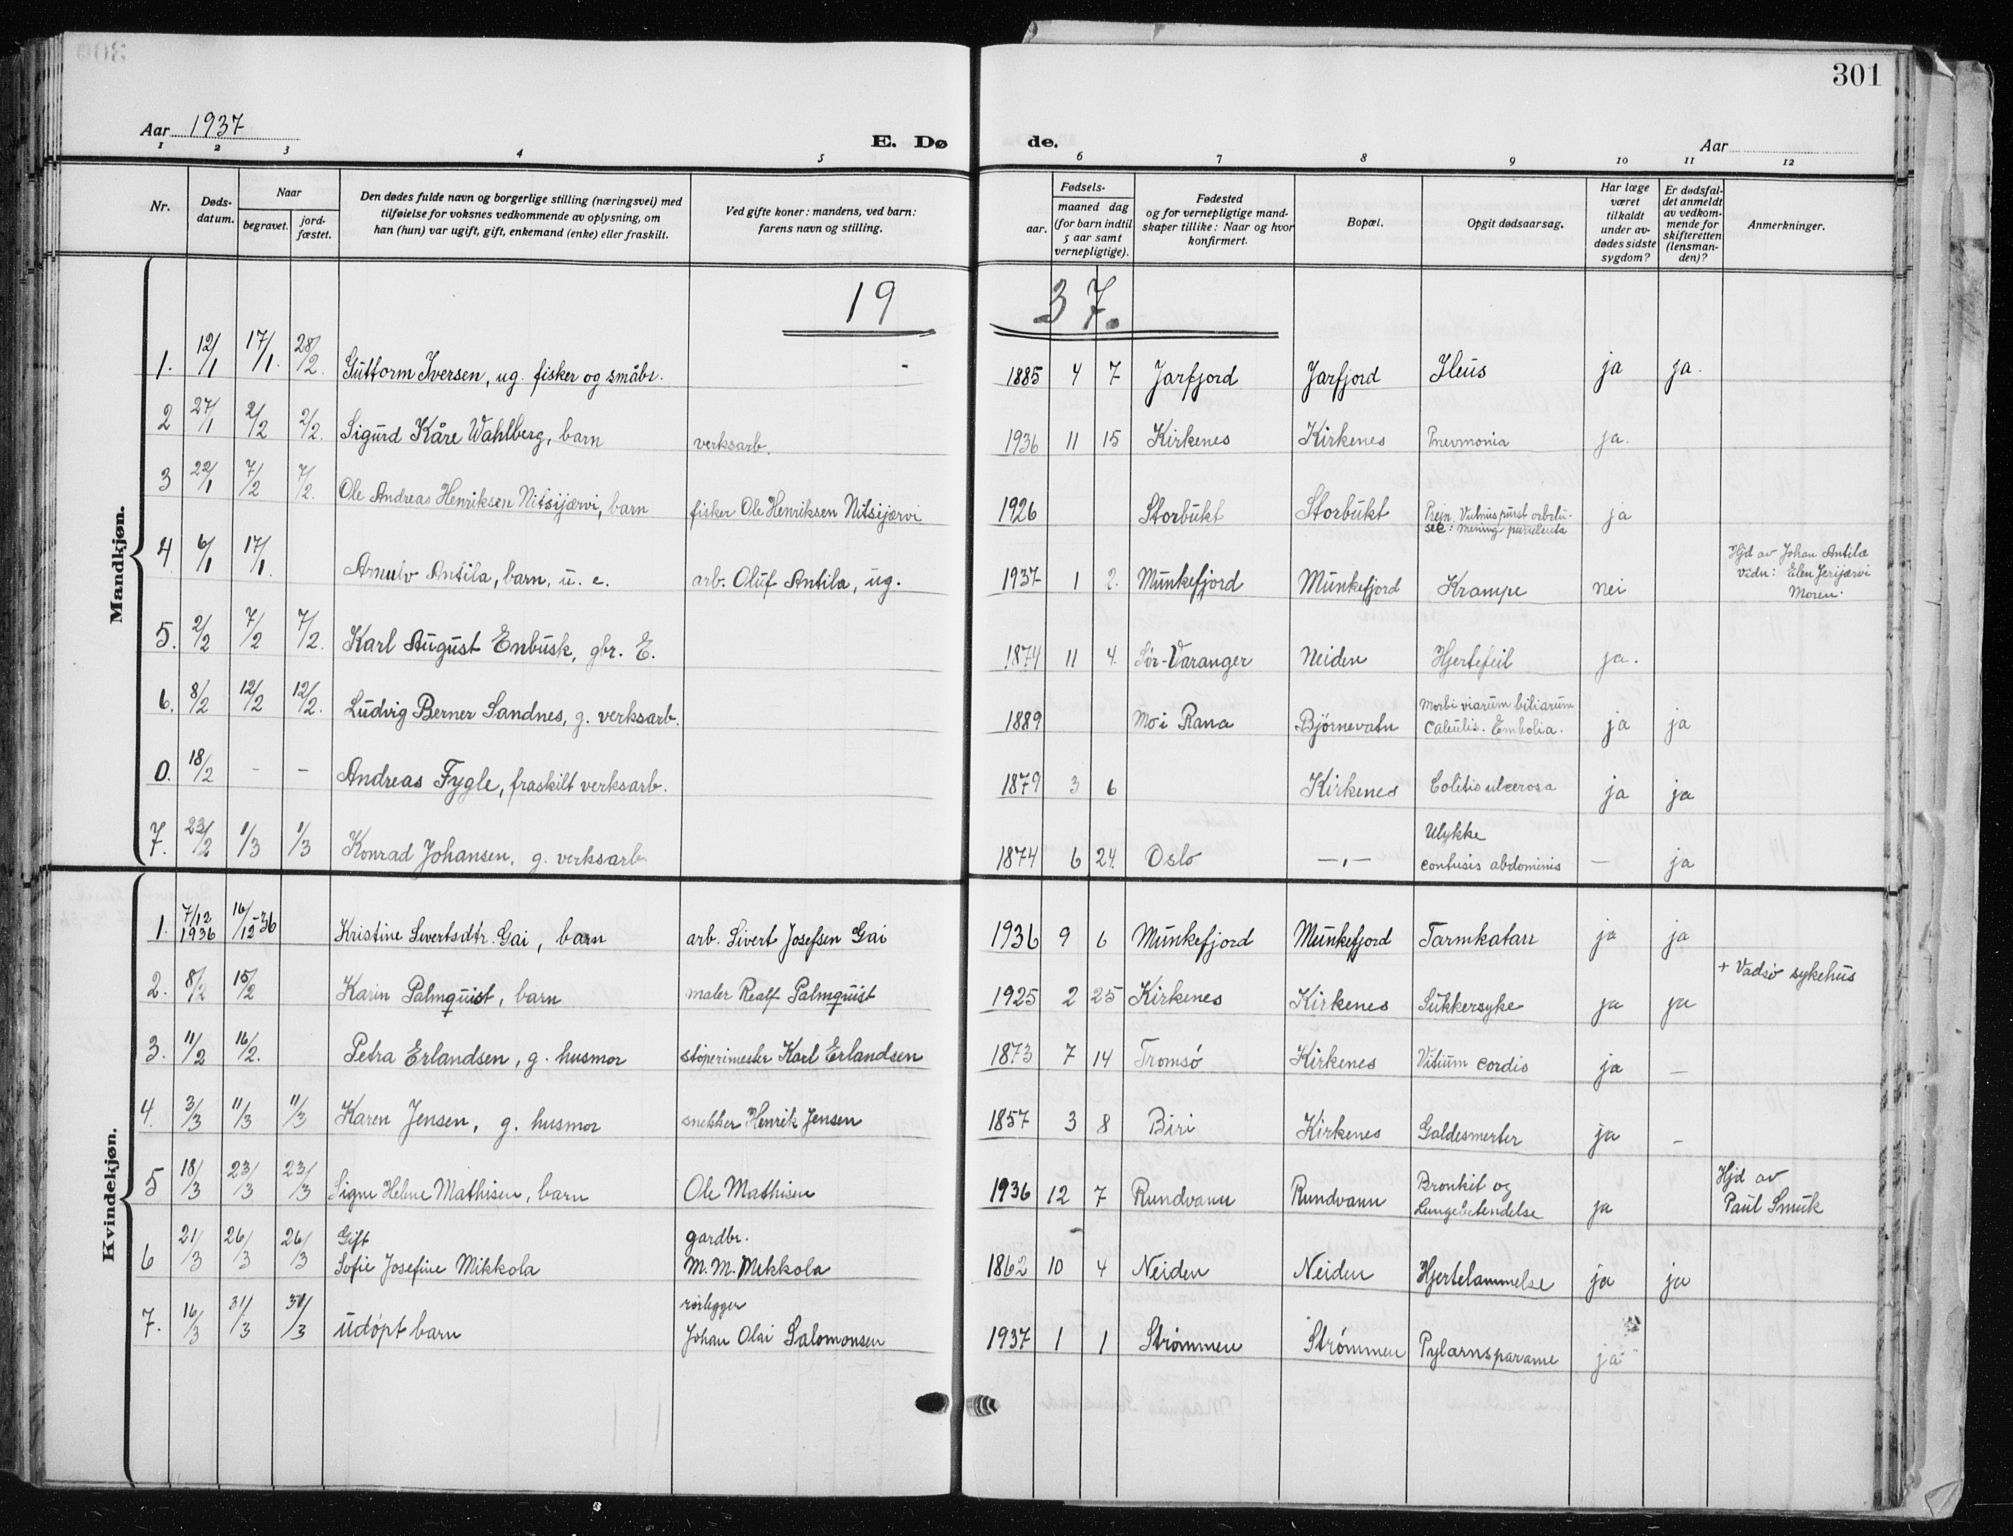 301
Aar 1937
E. Dø de.
Aar
1 2 3 4 5 6 7 8 9 10 11 12
Nr.
Døds-
datum.
Naar
begravet.
jord-
fæstet.
Den dødes fulde navn og borgerlige stilling (næringsvei) med
tilføielse for voksnes vedkommende av oplysning, om
han (hun) var ugift, gift, enkemand (enke) eller fraskilt.
Ved gifte koner: mandens, ved barn:
farens navn og stilling.
Fødsels-
aar.
maaned dag
(for barn indtil
5 aar samt
vernepligtige).
Fødested
og for vernepligtige mand-
skaper tillike: Naar og hvor
konfirmert.
Bopæl.
Opgit dødsaarsag.
Har læge
været
tilkaldt
under av-
dødes sidste
sygdom?
Er dødsfal-
det anmeldt
av vedkom-
mende for
skifteretten
(lensman-
den)?
Anmerkninger.
19 37.
Mandkjøn.
1. 12/1 17/1. 28/2. Guttorm Iversen, ug. fisker og småbr. - 1885 4 7 Jarfjord Jarfjord Ileus ja ja.
2 27/1 2/2 2/2. Sigurd Kåre Wahlberg, barn verksarb. 1936 11 15 Kirkenes Kirkenes Pnevmonia ja.
3 22/1 7/2 7/2. Ole Andreas Henriksen Nitsijærvi, barn fisker Ole Henriksen Nitsijærvi 1926 Storbukt Storbukt ja
4 6/1 17/1. Arnulv Antila, barn, u. e. arb. Oluf Antila, ug. 1937 1 2. Munkefjord Munkefjord Krampe nei
Hjd av Johan Antila
Vidn: Elen Jerijærvi
Moren.
5. 2/2 7/2 7/2. Karl August Enbusk, gbr. E. 1874 11 4. Sør-Varanger Neiden Hjertefeil ja.
6. 8/2 12/2 12/2. Ludvig Berner Sandnes, g. verksarb. 1889 Mo i Rana Bjørnevatn
Morbi viarum biliarum
Calculis. Embolia. ja ja
0. 18/2 - - Andreas Fygle, fraskilt verksarb. 1879 3 6 Kirkenes Colitis ulcerosa ja ja
7. 23/2 1/3 1/3 Konrad Johansen, g. verksarb 1874 6 24. Oslo —„—
Ulykke
contusis abdominis — ja
Kvindekjøn.
1. 7/12 1936 16/12-36 Kristine Sivertsdtr. Gai, barn arb. Sivert Josefsen Gai 1936 9 6 Munkefjord Munkefjord Tarmkatarr ja ja
2. 8/2 15/2 Karin Palmquist, barn maler Realf Palmquist 1925 2 25 Kirkenes Kirkenes Sukkersyke ja ja + Vadsø sykehus
3. 11/2 16/2. Petra Erlandsen, g. husmor støperimester Karl Erlandsen 1873 7 14 Tromsø Kirkenes Vitium cordis ja —
4. 3/3 11/3 11/3 Karen Jensen, g. husmor snekker Henrik Jensen 1857 3 8 Biri Kirkenes Galdesmerter ja —
5 18/3 23/3 23/3 Signe Helene Mathisen, barn Ole Mathisen 1936 12 7 Rundvann Rundvann
Bronkit og
Lungebetendelse ja
Hjd av
Paul Smuk
6 21/3 26/3 26/3
Gift
Sofie Josefine Mikkola
gardbr.
M. M. Mikkola 1862 10 4 Neiden Neiden Hjertelammelse ja ja
7. 16/3 31/3 31/3 udøpt barn
rørlegger
Johan Olai Salomonsen 1937 1 1 Strømmen Strømmen ja